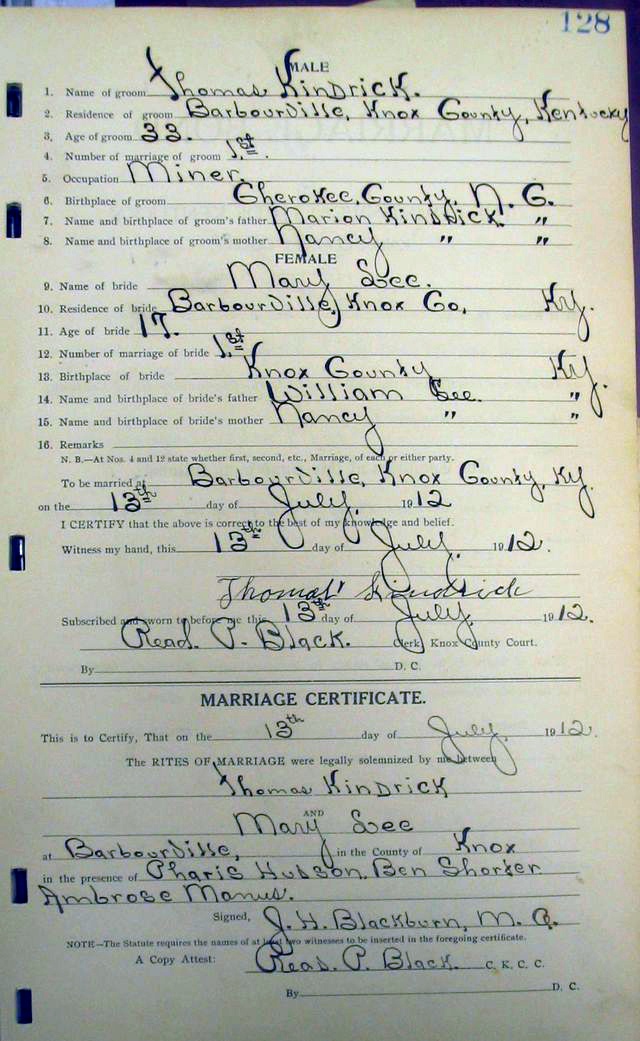 128
MALE
1. Name of groom Thomas Kindrick.
2. Residence of groom Barbourville, Knox County, Kentucky
3. Age of groom 33.
4. Number of marriage of groom 1.st.
5. Occupation Miner.
6. Birthplace of groom Cherokee, County, N. C.
7. Name and birthplace of groom's father Marion Kindrick. "
8. Name and birthplace of groom's mother Nancy " "
FEMALE
9. Name of bride Mary Lee.
10. Residence of bride Barbourville, Knox Co, Ky.
11. Age of bride 17.
12. Number of marriage of bride 1.st
13. Birthplace of bride Knox County Ky.
14. Name and birthplace of bride's father William Lee. "
15. Name and birthplace of bride's mother Nancy " "
16. Remarks
N. B.—At Nos. 4 and 12 state whether first, second, etc., Marriage, of each or either party.
To be married at Barbourville, Knox County, Ky.
on the 13th day of July. 1912
I CERTIFY that the above is correct to the best of my knowledge and belief.
Witness my hand, this 13th day of July. 1912.
Thomas Kindrick
Subscribed and sworn to before me this 13th day of July. 1912.
Read. P. Black. Clerk, Knox County Court.
By D. C.
MARRIAGE CERTIFICATE.
This is to Certify, That on the 13th day of July, 1912.
The RITES OF MARRIAGE were legally solemnized by me between
Thomas Kindrick
AND
Mary Lee
at Barbourville, in the County of Knox
in the presence of Pharis Hudson. Ben Shorter
Ambrose Manus.
Signed, J. H. Blackburn, M. G.
NOTE—The Statute requires the names of at least two witnesses to be inserted in the foregoing certificate.
A Copy Attest: Read. P. Black. C. K. C. C.
By D. C.